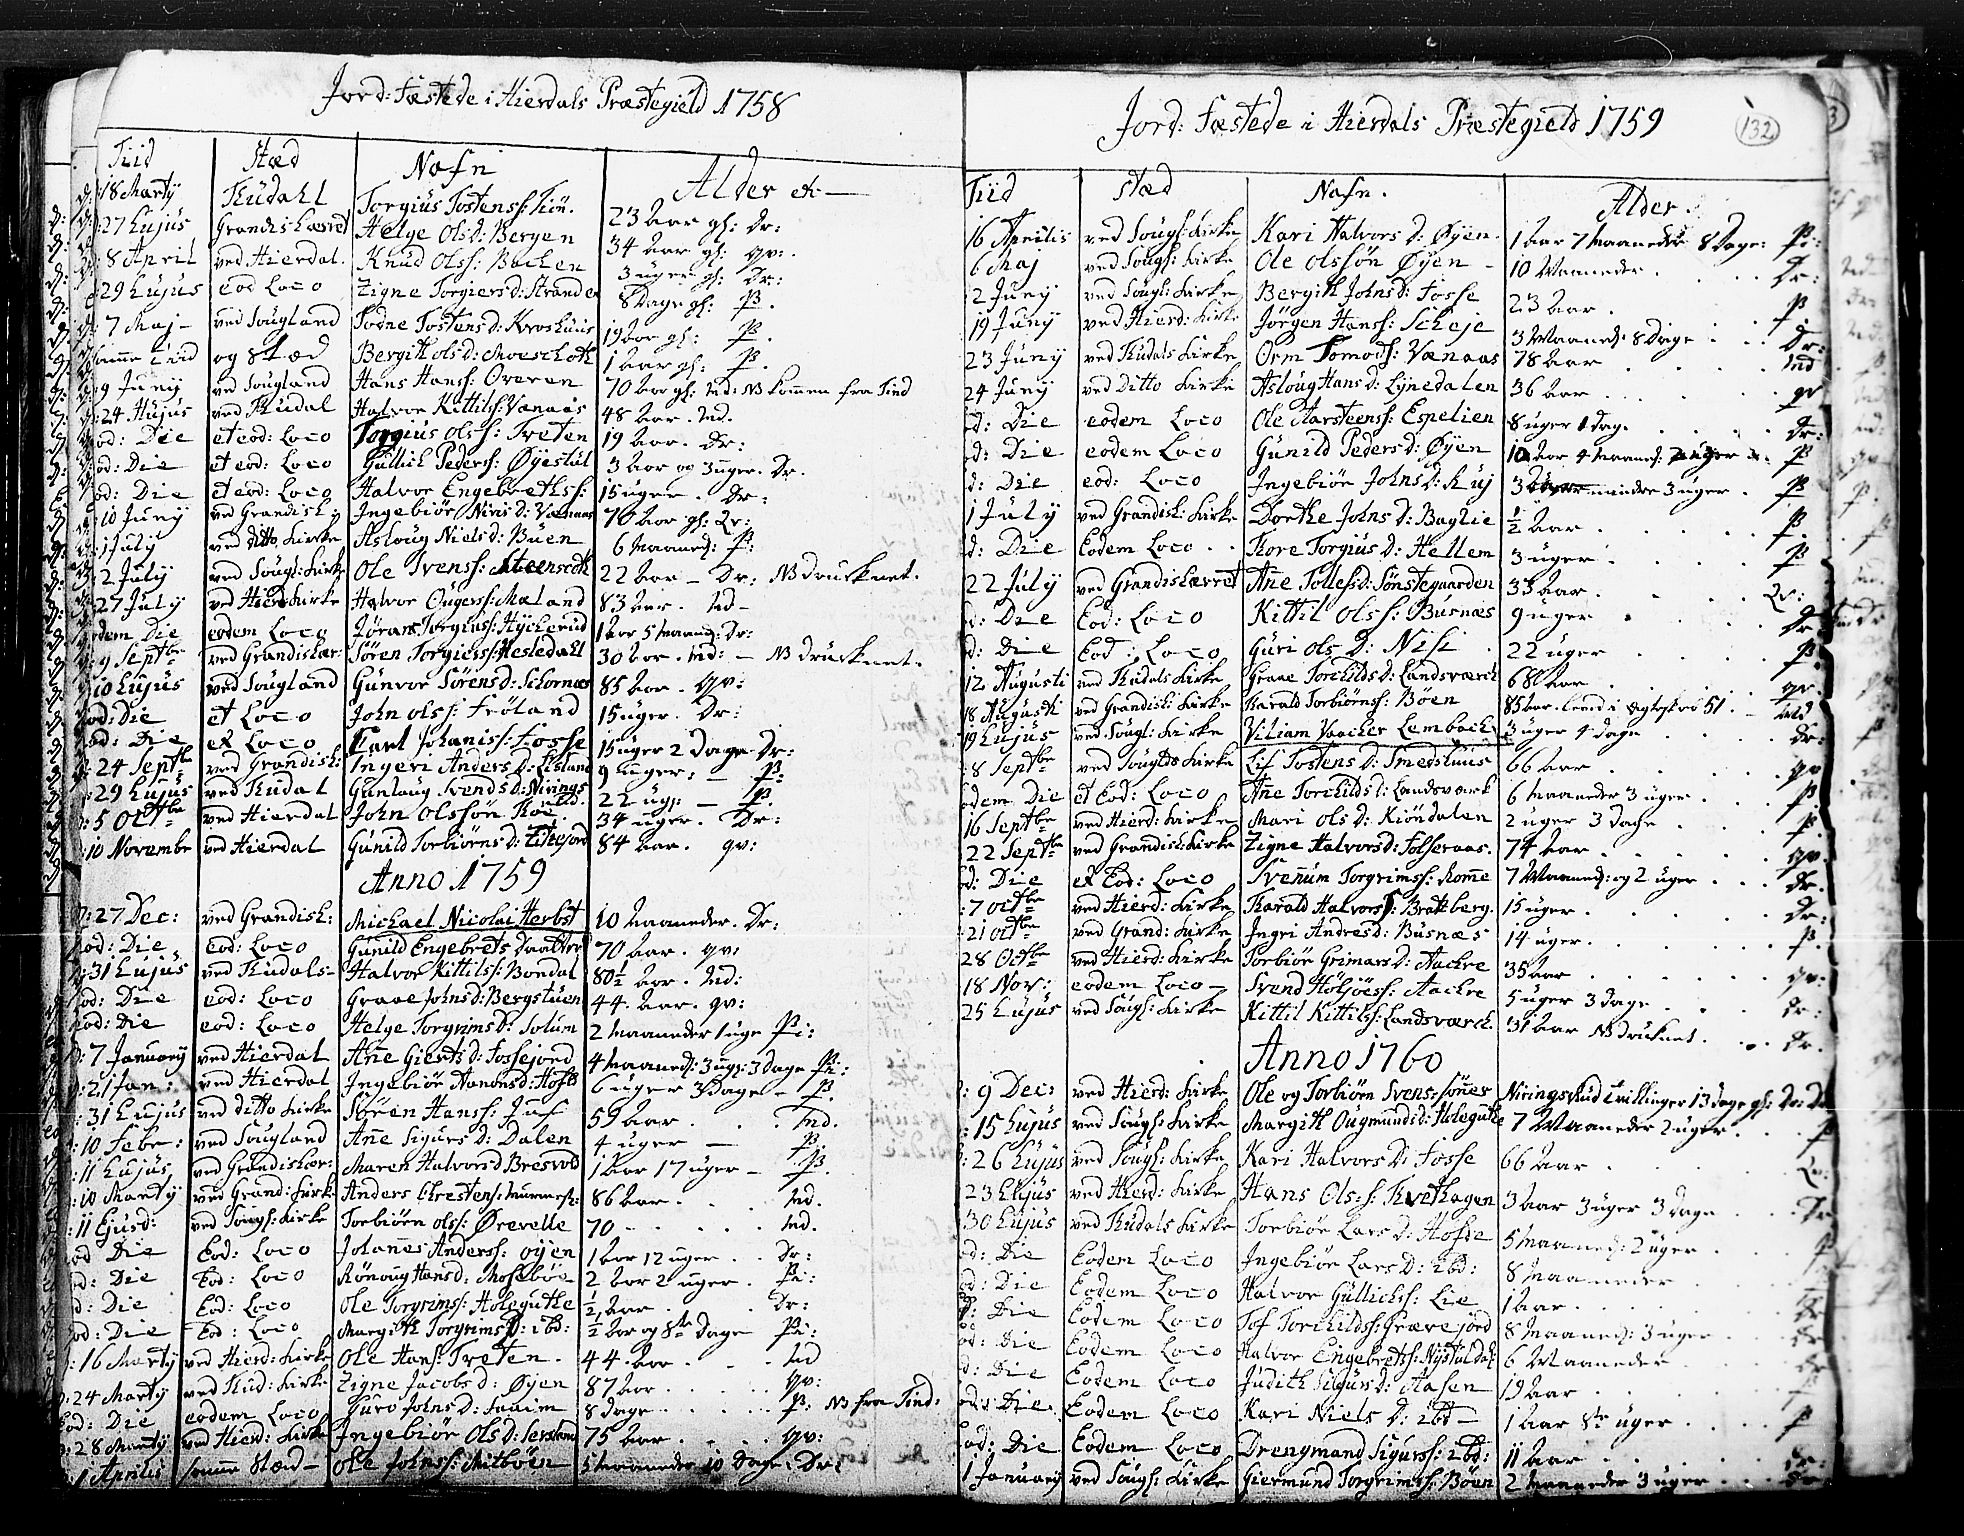 Jord: Fæstede i Hierdals Præstegield 1758
Tiid Stæd Nafn Alder etc
18 Marty Kudahl Torgius Tostens: 23 aar gl: Dr:
27 hujus Grandishærret Helge Olsd: Bergen 34 aar gl: qv:
8 April ved Hierdal. Knud Olss: Bachen 3 uger gl: Dr:
29 hujus Eod Loco Zigne Torgiersd: Strande 8 Dage gl: P.
7 Maj ved Sougland Todne Tostensd: Kroshuus 19 aar gl: P.
samme Tiid og Stæd Bergith Olsd: 1 aar gl: P.
9 Juny ved Sougland Hans Hanss: Overen 70 aar gl: md: NB kommen fra Tind
24 Hujus ved Kudal Halvor Kittilss: Vanaas 48 aar. md.
eod: Die et eod: Loco Torgius Olss: Treten 19 aar. Dr:
eod: Die et eod: Loco Gullich Peders: Øyestul 3 aar og 3 uger. Dr.
eod: Die et eod: Loco Halvor Engebrethss: 15 uger. Dr:
10 Juny ved Grandish: Ingebiør 70 aar gl: Qv:
1 July ved ditto Kirke Asloug Nielsd: Buen 6 Maaned: P:
2 July ved Sougl: Kirke Ole Svenss: 22 aar – Dr: NB drucknet.
27 July ved Hierd: Kirke Halvor Ougerss: Mæland 83 aar. md –
eodem Die eodem Loco Jøran Torgiuss: 1 aar 5 Maaned: Dr:
9 Septbr ved Grandishær: Søren Torgierss: Hesledahl 30 aar. md: – NB drucknet.
10 hujus ved Sougland Gunvor Sørensd: Schornæs 85 aar. qv:
eod: Die et Loco John Olss: Frøland 15 uger. Dr:
eod: Die et Loco Carl Johanis: Fosse 15 uger 2 Dage Dr:
24 Septbr ved Grandish: Ingeri Andersd: 9 uger: – P:
29 hujus ved Kudal Gunlaug Svendsd: 22 ug: – P.
5 Octbr ved Hierdal John Olssøn 34 uger. Dr:
10 Novembr ved Hierdal Gunild Torbiørnsd: 84 aar. qv:
Anno 1759
27 Dec: ved Grandish: Michael Nicolai Herbst 10 Maaneder. Dr:
eod: Die eod: Loco Gunild Engebrets Daatter 70 aar. qv:
31 hujus ved Kudals – Halvor Kittilss: Bondal 80½ aar. md:
eod: Die eod: Loco Graae Johnsd: Bergstuen 44 aar. qv:
eod: Die eod: Loco Helge Torgrimsd: Solum 2 Maaneder 1 uge Pi:
7 January ved Hierdal Anne Giertsd: Fossejord 4 Maaned: 3 ug: 3 Dage Pi:
21 Jan: ved Hierdal Ingebiør 6 uger 3 Dage – P.
31 hujus ved ditto Kirke Søren Hanss: 59 aar. md.
10 Febr: ved Sougland Anne Sigursd: Dalen 4 uger – P.
11 hujus ved Grandishær: Maren Halvorsd Bresvold 1 aar 17 uger – P.
10 Marty ved Grand: Kirke Anders Chrestens: 86 aar. md.
11 Ejusd: ved Sougl: Kirke Torbiørn Olss: Ørevelle 70 md.
eod Die Eod: Loco Johannes Anderss: Øyen 1 aar 12 uger Dr:
eod: Die Eod: Loco Rønoug Hansd: Mosebøe 2 aar 2 uger. Pi:
eod: Die Eod: Loco Ole Torgrims: Holeguthe ½ aar. Dr:
eod: Die Eod: Loco Margith Torgrimsd: ibd: ½ aar og 8te Dage Pi:
16 Marty ved Hierd: Kirke Ole Hans: Treten. 44 aar md
24 Marty ved Kud: Kirke Zigne Jacobsd: Øyen 87 aar qv:
eod: Die eodem Loco Guro Johnsd: 8 Dage P. NB fra Tind:
28 Marty ved Hierd: Kirke Ingebiør Olsd: 75 aar qv:
1 Aprilis samme Stæd – Ole Johnss: Mitbøen 5 Maaneder 10 Dage. Dr:
Jord: Fæstede i Hierdals Præstegield 1759
132
Tiid Stæd Nafn. Alder.
16 Aprilis ved Sougl: Kirke Kari Halvorsd: Øyen 1 aar 7 Maaneder 8 Dage: Pi:
6 Maj ved Sougl: Kirke Ole Olssøn Øyen 10 Maaneder Dr:
2 Juny ved Sougl: Kirke Bergith Johnsd: Fosse 23 aar. P.
19 Juny ved Hierd: Kirke Jørgen Hanss: Scheje 3 Maaned: 8 Dage Dr:
23 Juny ved Kudals Kirke Orm Tomods: Vanaas 78 aar md
24 Juny ved Ditto Kirke Asloug Hansd: Lynedalen 36 aar qv.
Eod: Die eodem Loco Ole Aarsteenss: Espelien 8 uger 1 dag. Dr:
Eod: Die eodem Loco Gunild Pedersd: Øyen 10 aar 4 Maaned: P
Eod: Die eod: Loco Ingebiør Johnsd: 3 minder 3 uger. P
1 July ved Grandish: Kirke Dorthe Johnsd: Baglie ½ aar P.
Eod: Die Eodem Loco Tore Torgiusd: Hellem 3 uger P
22 July ved Grandishærret Anne Tollefsd: Sønstegaarden 33 aar. Qv:
Eod: Die Eod: Loco Kittil Olss: Busnæs 9 uger Dr
Eod: Die Eod: Loco Guri Olsd: Nisi 22 uger P.
12 Augusti ved Kudals Kirke Graae Torchildsd: Landsværck 68 aar qv.
18 Augusti ved Grandish: Kirke Harald Torbiørnss: Bøen 85 aar. md
19 hujus ved Sougl: Kirke Viliam Vaacker Lembach 3 uger 4 dage dr:
8 Septbr ved Souglds Kirke Lif Tostensd: Smedshuus 66 aar qv
eodem Die et Eod: Loco Anne Torchildsd: Landsværk 6 Maaneder 3 uger P
16 Septbr ved Hierd: Kirke Mari Olsd: Kiøndalen 2 uger 3 dage P.
22 Septbr ved Grandish: Kirke Zigne Halvorsd: Folseraas. 74 aar qv.
Eod: Die et Eod: Loco Svenum Torgrimss: Romme 7 Maaned: og 2 uger dr.
7 Octbr ved Hierd: Kirke Harald Halvors: Bratberg. 15 uger. Dr:
21 Octbr ved Grand: Kirke Ingri Andresd: Busnæs 14 uger. P.
28 Octbr ved Hierd: Kirke Torbiør Grimarsd: Aackre 35 aar qv.
18 Nov: eodem Loco – Svend Høljøess: Aackre 5 uger 3 dage dr:
25 hujus ved Sougl: Kirke Kittil Kittilss: Landsværck. 31 aar NB drucknet. Dr.
Anno 1760
9 Dec: ved Hierd: Kirke Ole og Torbiørn Svens: sønner Nirings: tvillinger 13 dage gl: Dr: Dr
15 hujus ved Sougl: Kirke Margith Ougmundsd: Holeguthe 7 Maaneder 2 uger P
26 hujus ved Sougl: Kirke Kari Halvorsd: Fosse 66 aar Qv:
23 hujus ved Hierd: Kirke Hans Ols:s: Kvethagen 3 aar 3 uger 3 Dage Dr
30 hujus ved Kudals Kirke Torbiør Larsd: Hofde 5 Maaned: 2 uger P
eod: Die Eodem Loco Ingebiør Larsd: ibd: 8 Maaneder P
eod: Die Eodem Loco Halvor Gullichss: Lie 1 aar. Dr
eod: Die Eodem Loco Tof Torchildss: Grævejord 8 Maaned: 3 uger dr
eod: Die Eodem Loco Halvor Engebretss: 6 Maaneder dr
eod: Die Eodem Loco Judith Sigursd: Aasen 19 aar P
eod: Die. Eodem Loco Kari Nielsd: ibd – 1 aar 8te uger P
eod: Die Eodem Loco Drengmand Sigurss: ibd: 11 aar dr:
1 January ved Sougl: Kirke Giermund Torgrimss: Bøen 2 Maaneder 3 uger dr